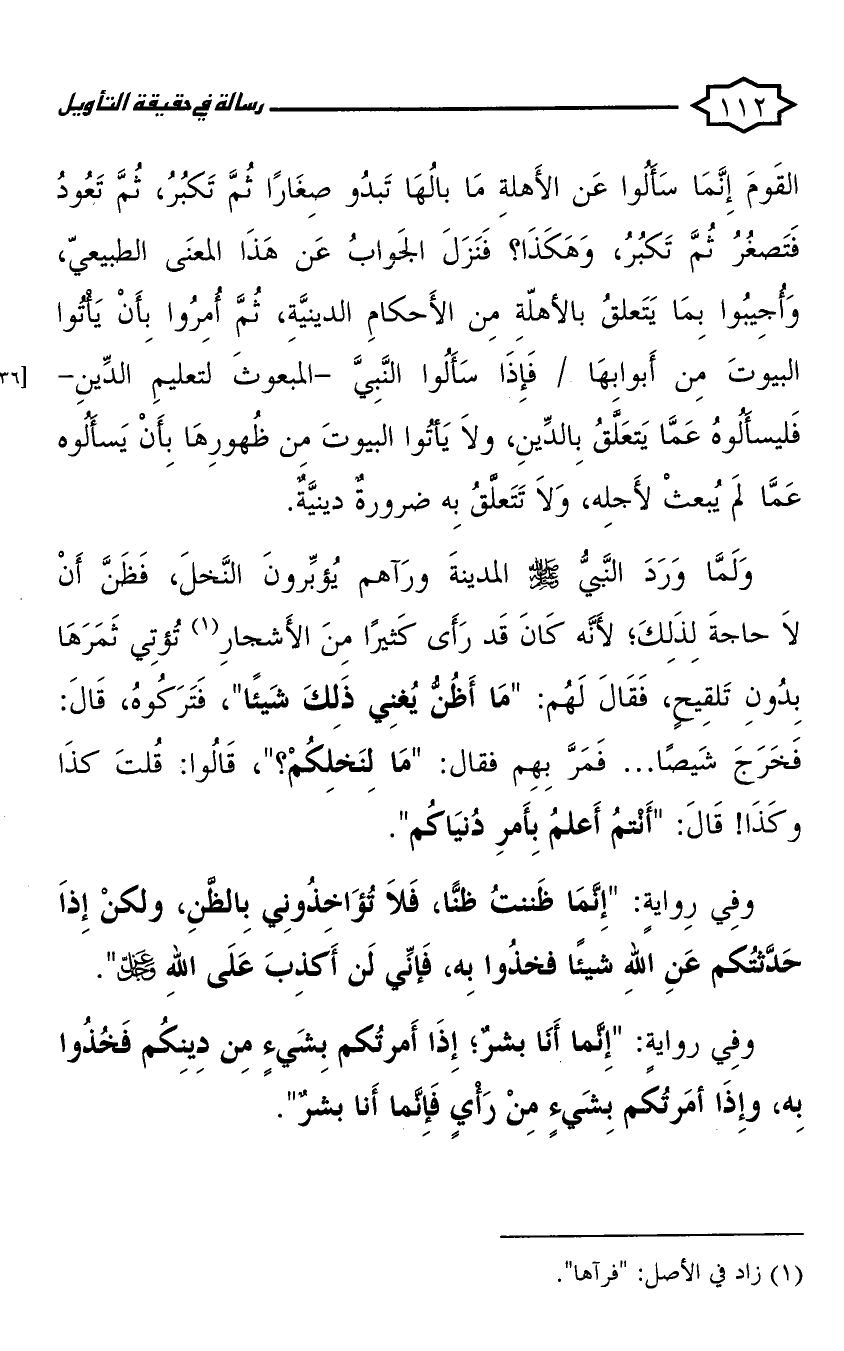 ١١٢ رسالة في حقيقة التأويل
القَومَ إِنَّمَا سَأَلُوا عَن الأَهلةِ مَا بالُهَا تَبدُو صِغَارًا ثُمَّ تَكبُرُ، ثُمَّ تَعُودُ
فَتَصغُرُ ثُمَّ تَكبُرُ، وَهَكَذَا؟ فَنَزَلَ الجَوابُ عَن هَذَا المعنَى الطبيعيّ،
وَأُجِيبُوا بِمَا يَتَعلقُ بالأهلّةِ مِن الأَحكامِ الدينيَّةِ، ثُمَّ أُمِرُوا بِأَنْ يَأْتُوا
البيوتَ مِن أَبوابِهَا / فَإِذَا سَأَلُوا النَّبِيَّ –المبعوثَ لتعليمِ الدِّينِ– [٣٦
فَليسأَلُوهُ عَمَّا يَتعَلَّقُ بِالدِّينِ، ولاَ يَأتُوا البيوتَ مِن ظُهورِهَا بِأَنْ يَسأَلُوه
عَمَّا لَم يُبعثْ لأَجلِه، وَلاَ تَتَعلَّقُ بِه ضرورةٌ دينيَّةٌ.
وَلَمَّا وَرَدَ النَّبيُّ ﷺ المدينةَ ورَآهم يُؤبِّرونَ النَّخلَ، فَظَنَّ أَنْ
لاَ حاجةَ لِذَلِكَ؛ لأَنَّه كَانَ قَد رَأَى كَثيرًا مِنَ الأَشجارِ(١) تُؤتِي ثَمَرَهَا
بِدُونِ تَلقِيحٍ، فَقَالَ لَهُم: "مَا أَظُنُّ يُغنِي ذَلِكَ شَيئًا"، فَتَرَكُوهُ، قَالَ:
فَخَرَجَ شَيصًا... فَمَرَّ بِهِم فقال: "مَا لِنَخلِكُمْ؟"، قَالُوا: قُلتَ كذَا
وكَذَا! قَالَ: "أَنْتمُ أَعلمُ بِأَمرِ دُنيَاكُم".
وفِي رِوايةٍ: "إِنَّمَا ظَننتُ ظنًّا، فَلاَ تُؤَاخِذُوني بِالظَّنِ، ولكنْ إِذاَ
حَدَّثتُكم عَنِ اللهِ شيئًا فخذُوا بِه، فَإِنِّي لَن أَكذِبَ عَلَى اللهِ عز وجل".
وفِي روايةٍ: "إِنَّما أَنَا بشرٌ؛ إِذَا أَمرتُكم بِشَيءٍ مِن دِينِكُم فَخُذُوا
بِه، وإِذَا أمَرتُكم بِشَيءٍ مِنْ رَأْيٍ فَإِنَّما أَنا بشرٌ".
(١) زاد في الأصل: "فرآها".